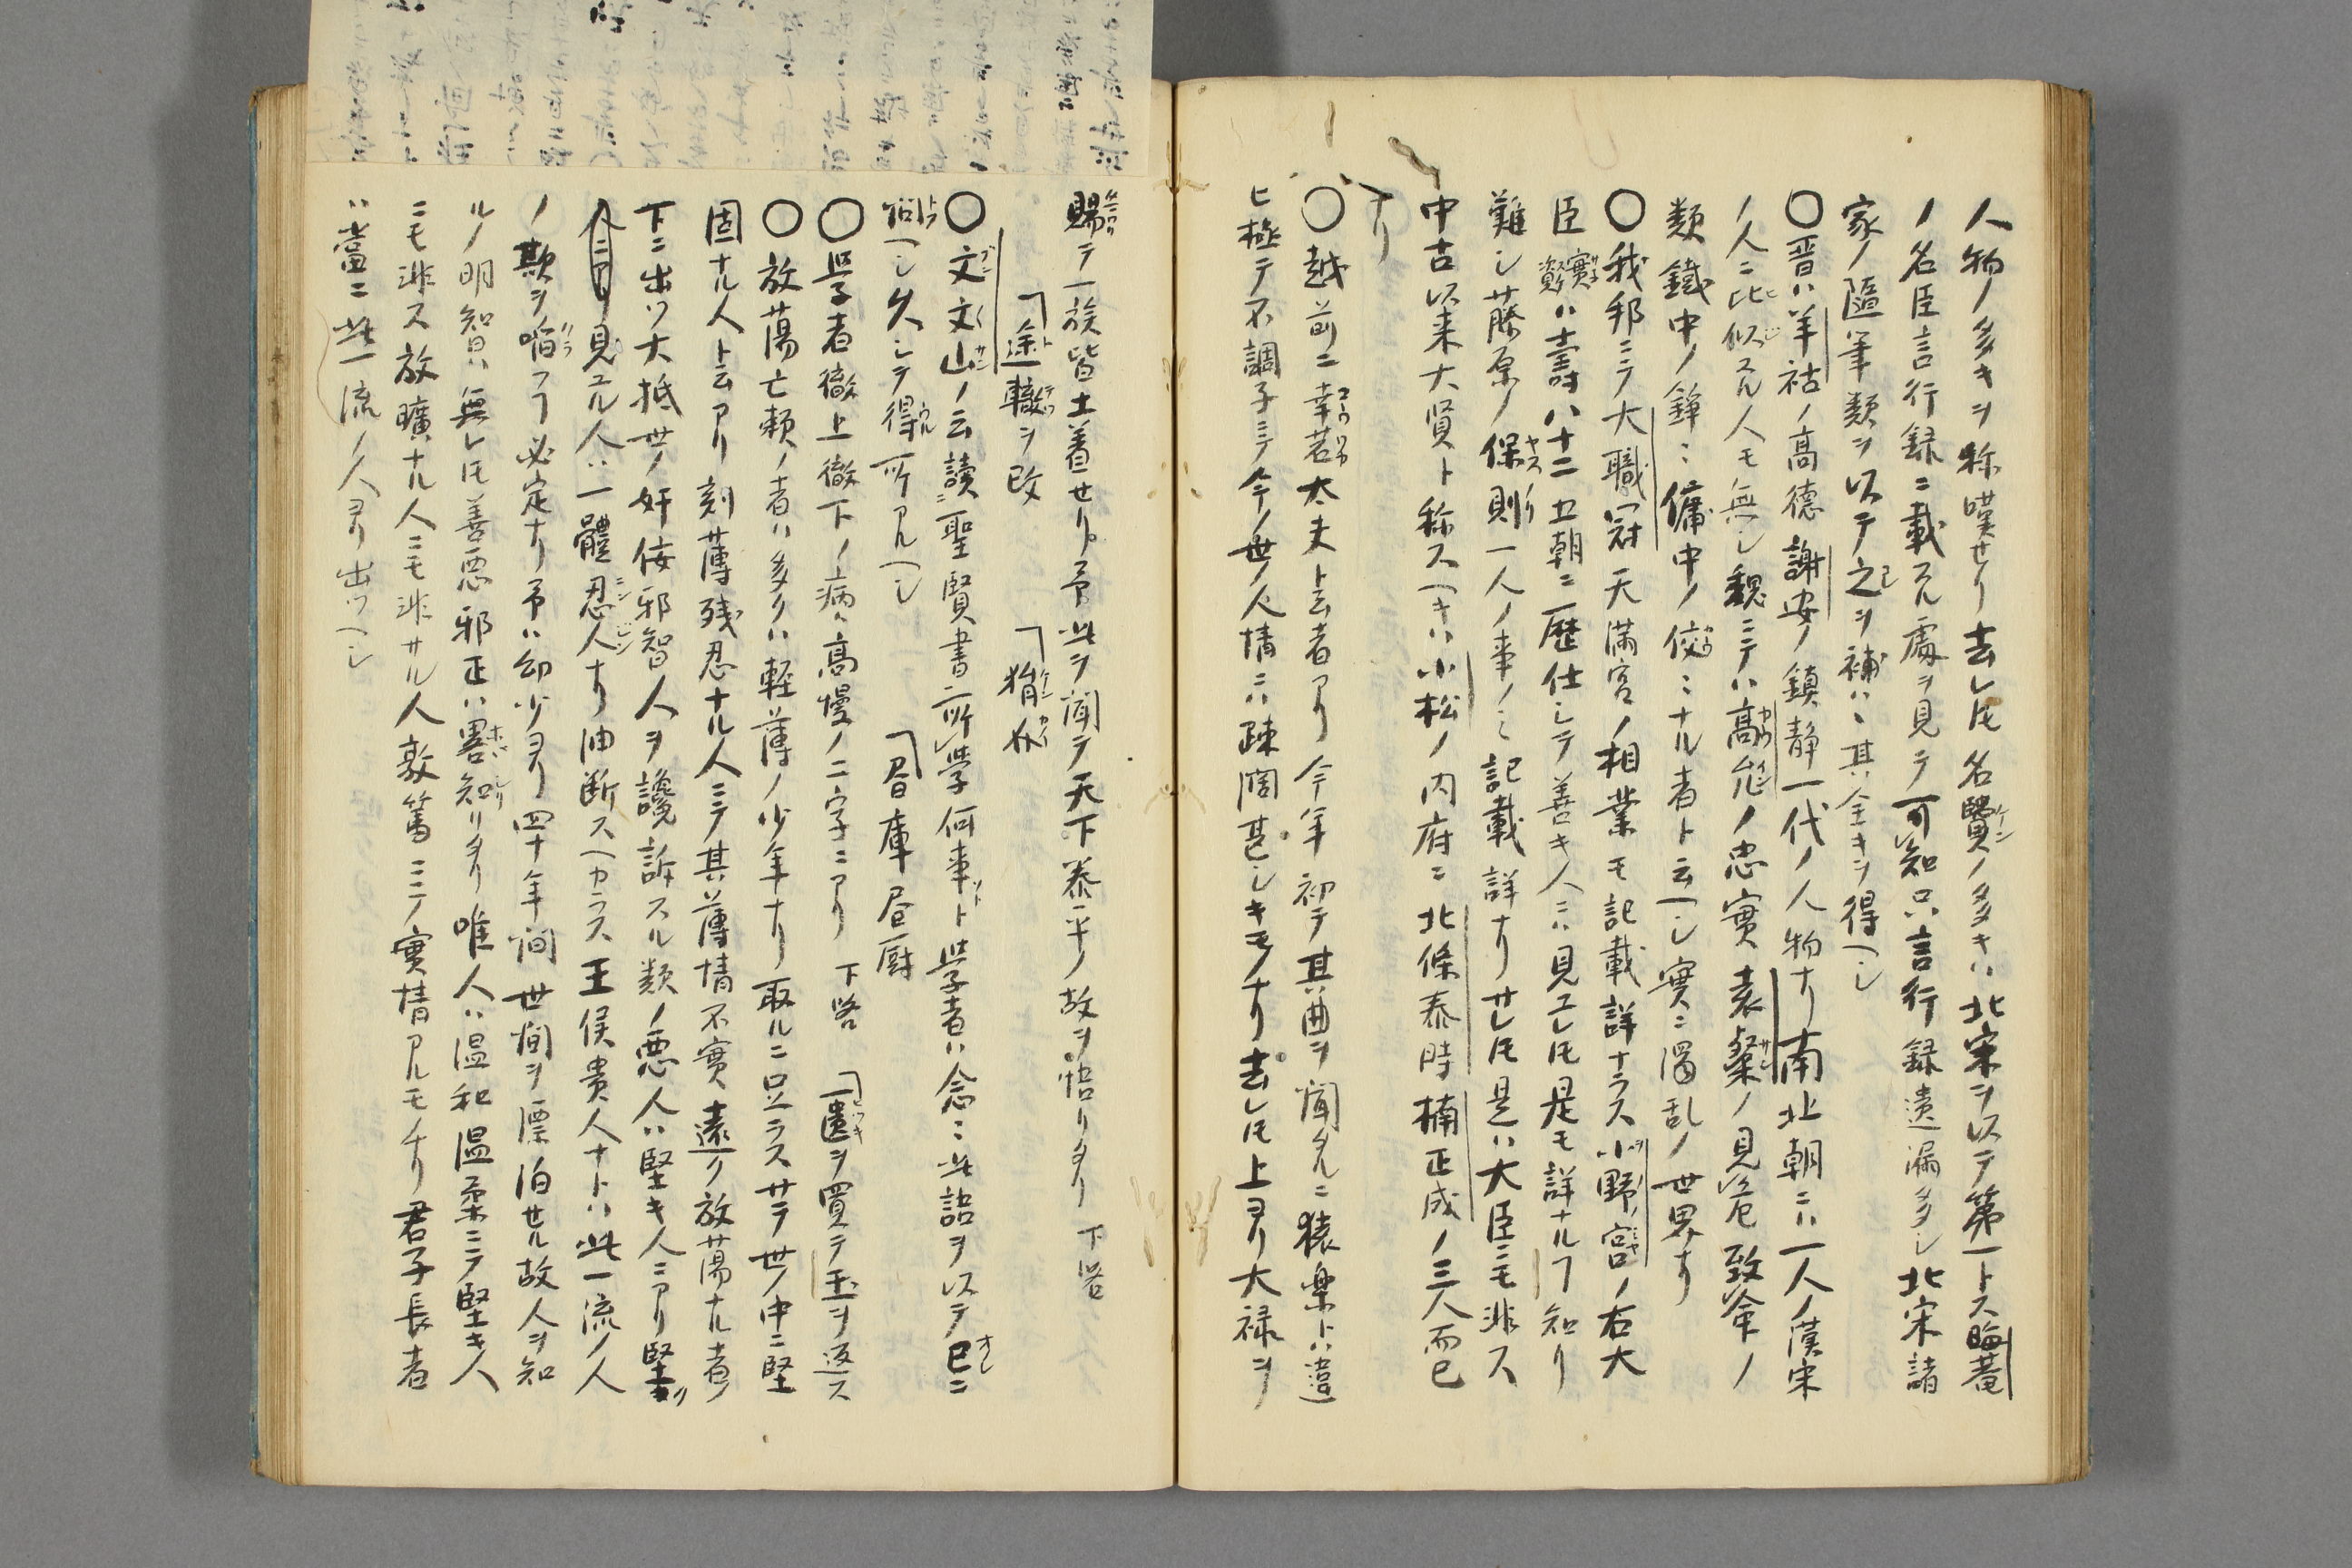 人物ノ多キヲ称嘆セリ去レ𪜈名賢ノ多キハ北宋ヲ以テ第一トス晦菴
ノ名臣言行録ニ載スル處ヲ見テ可知只言行録遺漏多シ北宋諸
家ノ随筆類ヲ以テ之ヲ補ハヽ其全キヲ得ヘシ
〇晋ハ羊祜ノ高徳謝安ノ鎮静一代ノ人物ナリ南北朝ニハ一人ノ漢宋
ノ人ニ比似スル人モ無シ魏ニテハ高允ノ忠實袁粲ノ見危致命ノ
類鐵中ノ錚ミ傭中ノ佼ミナル者ト云ヘシ實ニ濁乱ノ世界ナリ
〇我邦ニテ大職冠天満宮ノ相業モ記載詳ナラス小野宮ノ右大
臣實資ハ壽八十ニ立朝ニ歴仕シテ善キ人ニハ見エレ𪜈是モ詳ナルヿ知リ
難シ藤原ノ保則一人ノ事ノミ記載詳ナリサレ𪜈是ハ大臣ニモ非ス
中古以来大賢ト称スヘキハ小松ノ内府ニ北條泰時楠正成ノ三人而已
ナリ
〇越前ニ幸若太夫ト云者アリ今年初テ其曲ヲ聞タルニ猿楽トハ違
ヒ極テ不調子ニテ今ノ世ノ人情ニハ疎闊甚シキモノナリ去レ𪜈上ヨリ大禄ヲ
賜テ一族皆土着セリ予此ヲ聞テ天下泰平ノ故ヲ悟リタリ 下畧
「途轍ヲ改 「狷介
〇文文山ノ云讀聖賢書所学何事ト学者ハ念ニ此語ヲ以テ己ニ
問ヘシ久シテ得所アルヘシ 「昼庫昼厨
〇学者徹上徹下ノ病ハ高慢ノ二字ニアリ 下畧 「匱ヲ買テ玉ヲ返ス
〇放蕩亡頼ノ者ハ多クハ軽薄ノ少年ナリ取ルニ足ラスサテ世ノ中ニ堅
固ナル人ト云アリ刻薄残忍ナル人ニテ其薄情不實遠ク放蕩ナル者ノ
下ニ出ツ大抵世ノ奸佞邪智人ヲ讒訴スル類ノ悪人ハ堅キ人ニアリ堅ク
見ユル人ハ一體忍人ナリ油断スヘカラス王侯貴人ナトハ此一流ノ人
ノ欺ヲ啗フヿ必定ナリ予ハ幼少ヨリ四十年間世間ヲ漂泊セル故人ヲ知
ルノ明智ハ無レ𪜈善悪邪正ハ畧知リタリ唯人ハ温和温柔ニテ堅キ人
ニモ非ス放曠ナル人ニモ非サル人敦篤ニシテ實情アルモノナリ君子長者
ハ當ニ此一流ノ人ヨリ出ツヘシ